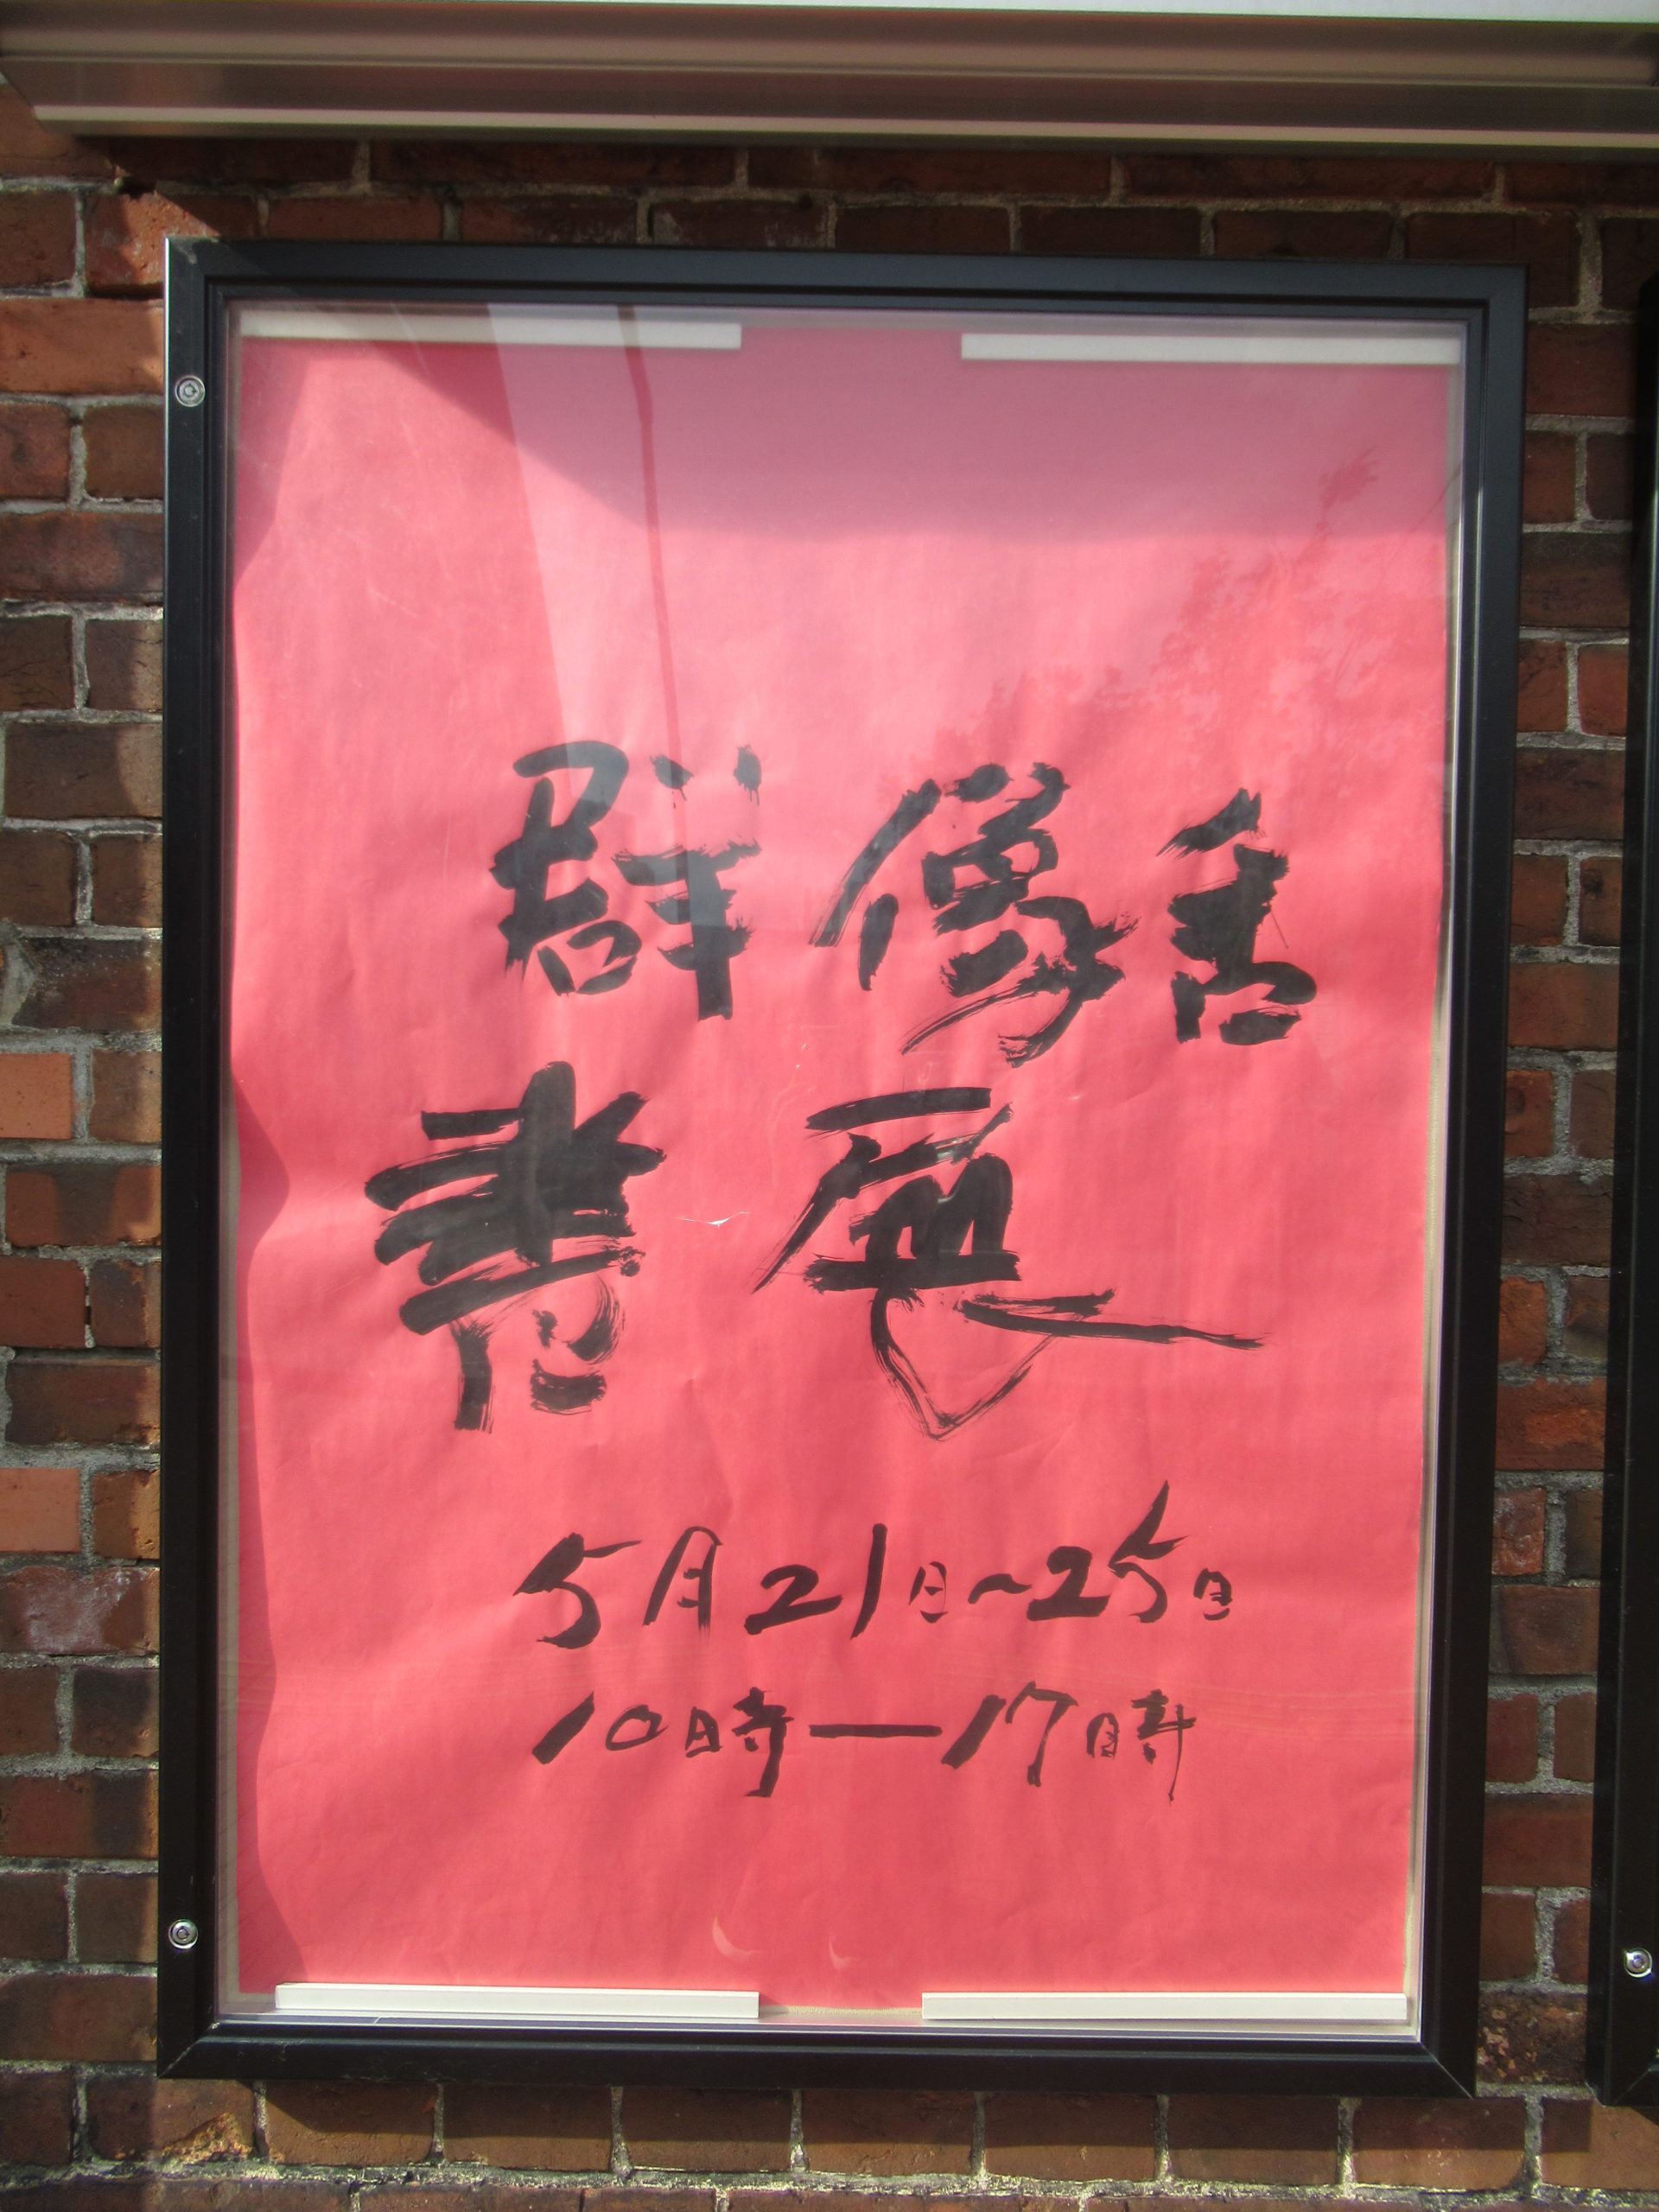 群像舎
書展
5月21日~25日
10時—17時